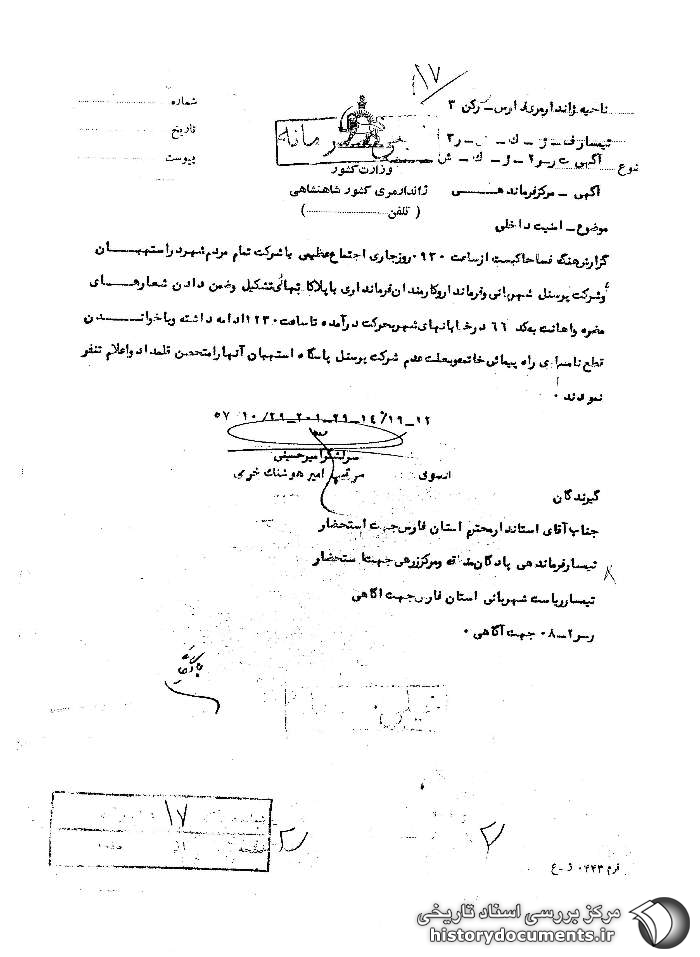 ۱۷
ناحیه ژاندارمری فارس ـ رکن ۳
شماره
تیمسار ف ـ ژ ـ ك ـ ش ـ ر۳
تاریخ
محرمانه
آگهی ـ ر۲ ـ و ـ ك ـ ش
نوع
پیوست
وزارت کشور
آگهی ـ مرکز فرماندهی
ژاندارمری کشور شاهنشاهی
موضوع ـ امنیت داخلی
( تلفن )
گزارش هنگ فسا حاکیست از ساعت ۰۹۳۰ روز جاری اجتماع عظیمی با شرکت تمام مردم شهر در استهبان
و شرکت پرسنل شهربانی و فرماندار و کارمندان فرمانداری با پلاکاتهائی تشکیل و ضمن دادن شعارهای
مضره و اهانت به کد ۶۶ در خیابانهای شهر بحرکت درآمده تا ساعت ۱۲۳۰ ادامه داشته و با خواندن
قطع نامه ای راه پیمائی خاتمه و بعلت عدم شرکت پرسنل پاسگاه استهبان آنها را متحصن قلمداد و اعلام تنفر
نمودند ۰
۱۲ـ۱۴/۱۹ـ۲۹ـ۲۰۱ـ۲۹/ ۱۰/ ۵۷
سرلشگر امیرحسینی
از سوی
سرتیپ امیر هوشنگ خرمی
گیرندگان
جناب آقای استاندار محترم استان فارس جهت استحضار
تیمسار فرماندهی پادگان و مرکز زرهی جهت استحضار
تیمسار ریاست شهربانی استان فارس جهت آگاهی
ر سو ۲ـ۰۸ جهت آگاهی ۰
بایگانی
۱۷
۲
فرم ۰۴۴۳ ژ ـ ع
مرکز بررسی اسناد تاریخی
historydocuments.ir